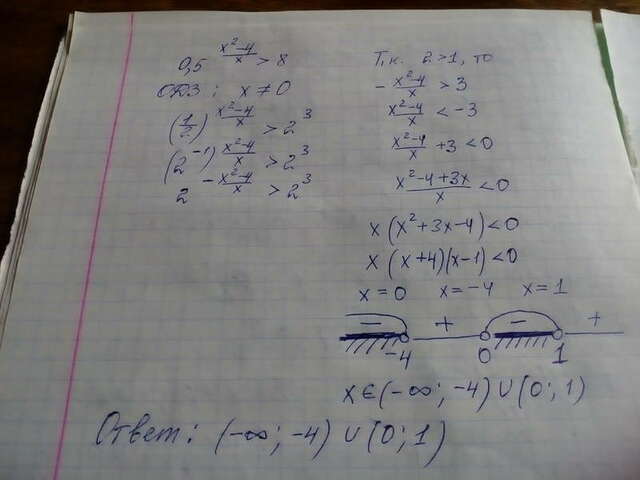 0,5^((x²-4)/x) > 8
ОДЗ: x ≠ 0
(1/2)^((x²-4)/x) > 2³
(2⁻¹)^((x²-4)/x) > 2³
2^(-(x²-4)/x) > 2³
Т.к. 2>1, то
-(x²-4)/x > 3
(x²-4)/x < -3
(x²-4)/x + 3 < 0
(x²-4+3x)/x < 0
x(x²+3x-4)<0
x(x+4)(x-1)<0
x=0 x=-4 x=1
- + - +
-4 0 1
x∈(-∞; -4)∪(0; 1)
Ответ: (-∞; -4)∪(0; 1)